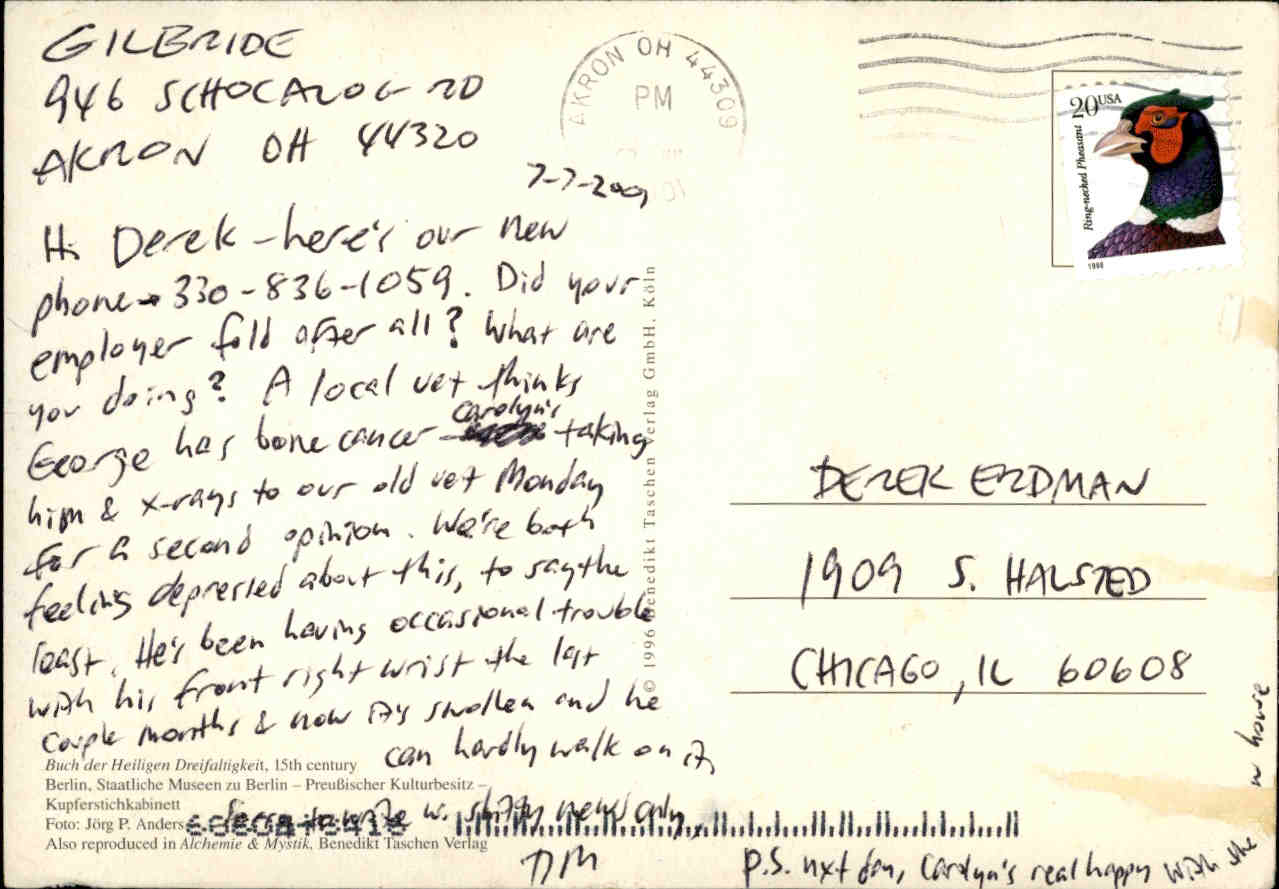 GILBRIDE
946 SCHOCALOG RD
AKRON OH 44320
7-7-2001
Hi Derek - here's our new
phone → 330-836-1059. Did your
employer fold after all? What are
you doing? A local vet thinks
George has bone cancer - Carolyn's taking
him & x-rays to our old vet Monday
for a second opinion. We're both
feeling depressed about this, to say the
least. He's been having occasional trouble
with his front right wrist the last
couple months & now it's swollen and he
can hardly walk on it.
Sorry to write w. shitty news only,
TIM
P.S. nxt day, Carolyn's real happy with the
w house
Buch der Heiligen Dreifaltigkeit, 15th century
Berlin, Staatliche Museen zu Berlin – Preußischer Kulturbesitz –
Kupferstichkabinett
Foto: Jörg P. Anders
Also reproduced in Alchemie & Mystik, Benedikt Taschen Verlag
© 1996 Benedikt Taschen Verlag GmbH, Köln
AKRON OH 44309
PM
01
20 USA
Ring-necked Pheasant
1998
DEREK ERDMAN
1909 S. HALSTED
CHICAGO, IL 60608